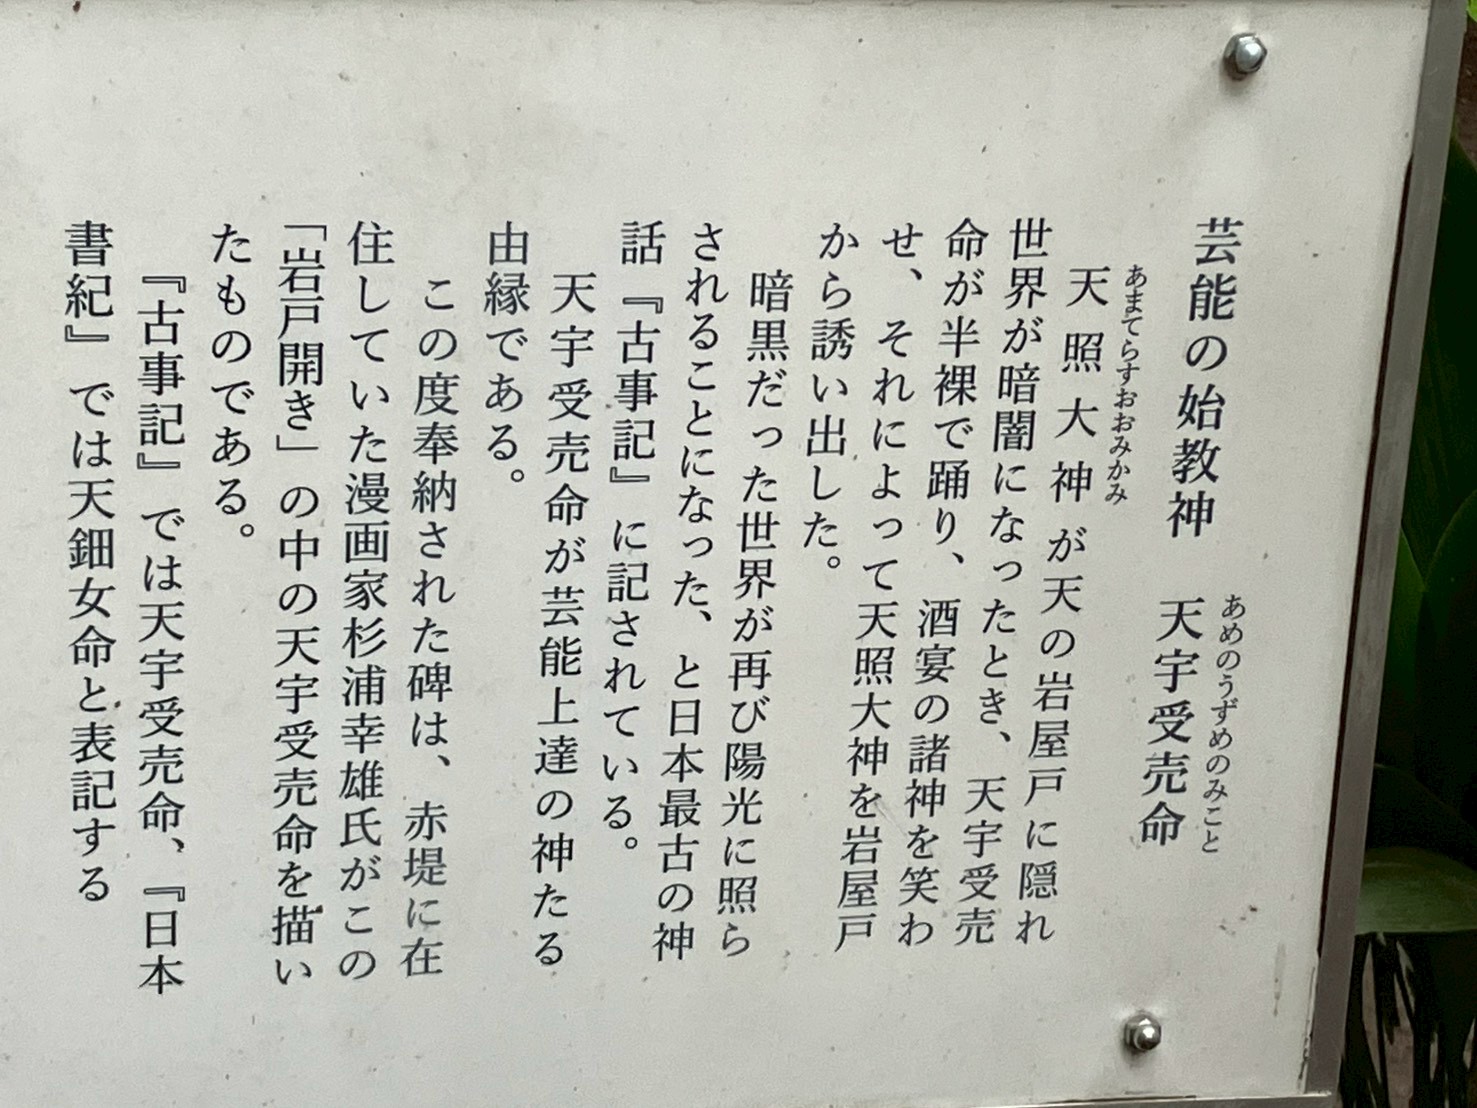 芸能の始教神　天宇受売命
あめのうずめのみこと
あまてらすおおみかみ
天照大神が天の岩屋戸に隠れ
世界が暗闇になったとき、天宇受売
命が半裸で踊り、酒宴の諸神を笑わ
せ、それによって天照大神を岩屋戸
から誘い出した。
暗黒だった世界が再び陽光に照ら
されることになった、と日本最古の神
話『古事記』に記されている。
天宇受売命が芸能上達の神たる
由縁である。
この度奉納された碑は、赤堤に在
住していた漫画家杉浦幸雄氏がこの
「岩戸開き」の中の天宇受売命を描い
たものである。
『古事記』では天宇受売命、『日本
書紀』では天鈿女命と表記する